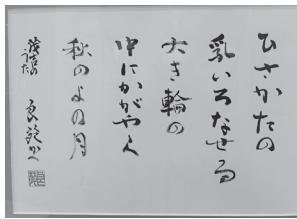 ひさかたの
乳いろなせる
大き輪の
中にかがやく
秋のよの月
茂吉のうた